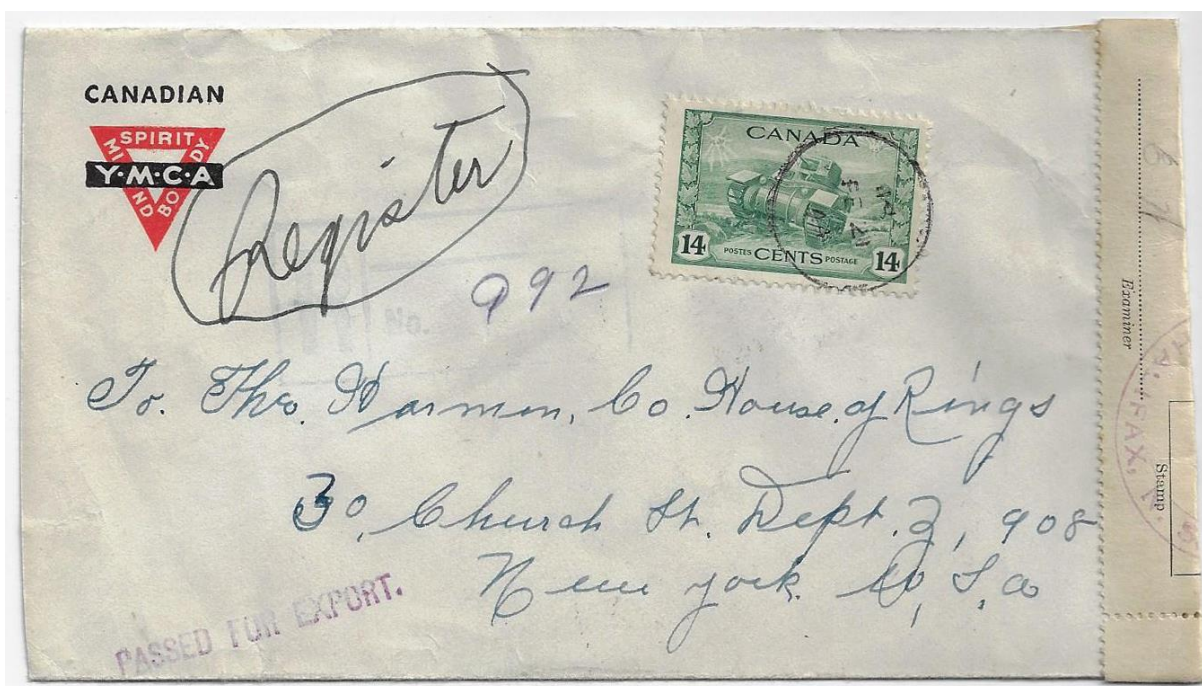 CANADIAN
SPIRIT
MIND
BODY
Y·M·C·A
Register
CANADA
14
POSTES CENTS POSTAGE
14
No. 992
To. Theo. Harmon, Co. House of Rings
30, Church St. Dept. Z, 908
New york. U, S, a
PASSED FOR EXPORT.
Examiner
Stamp